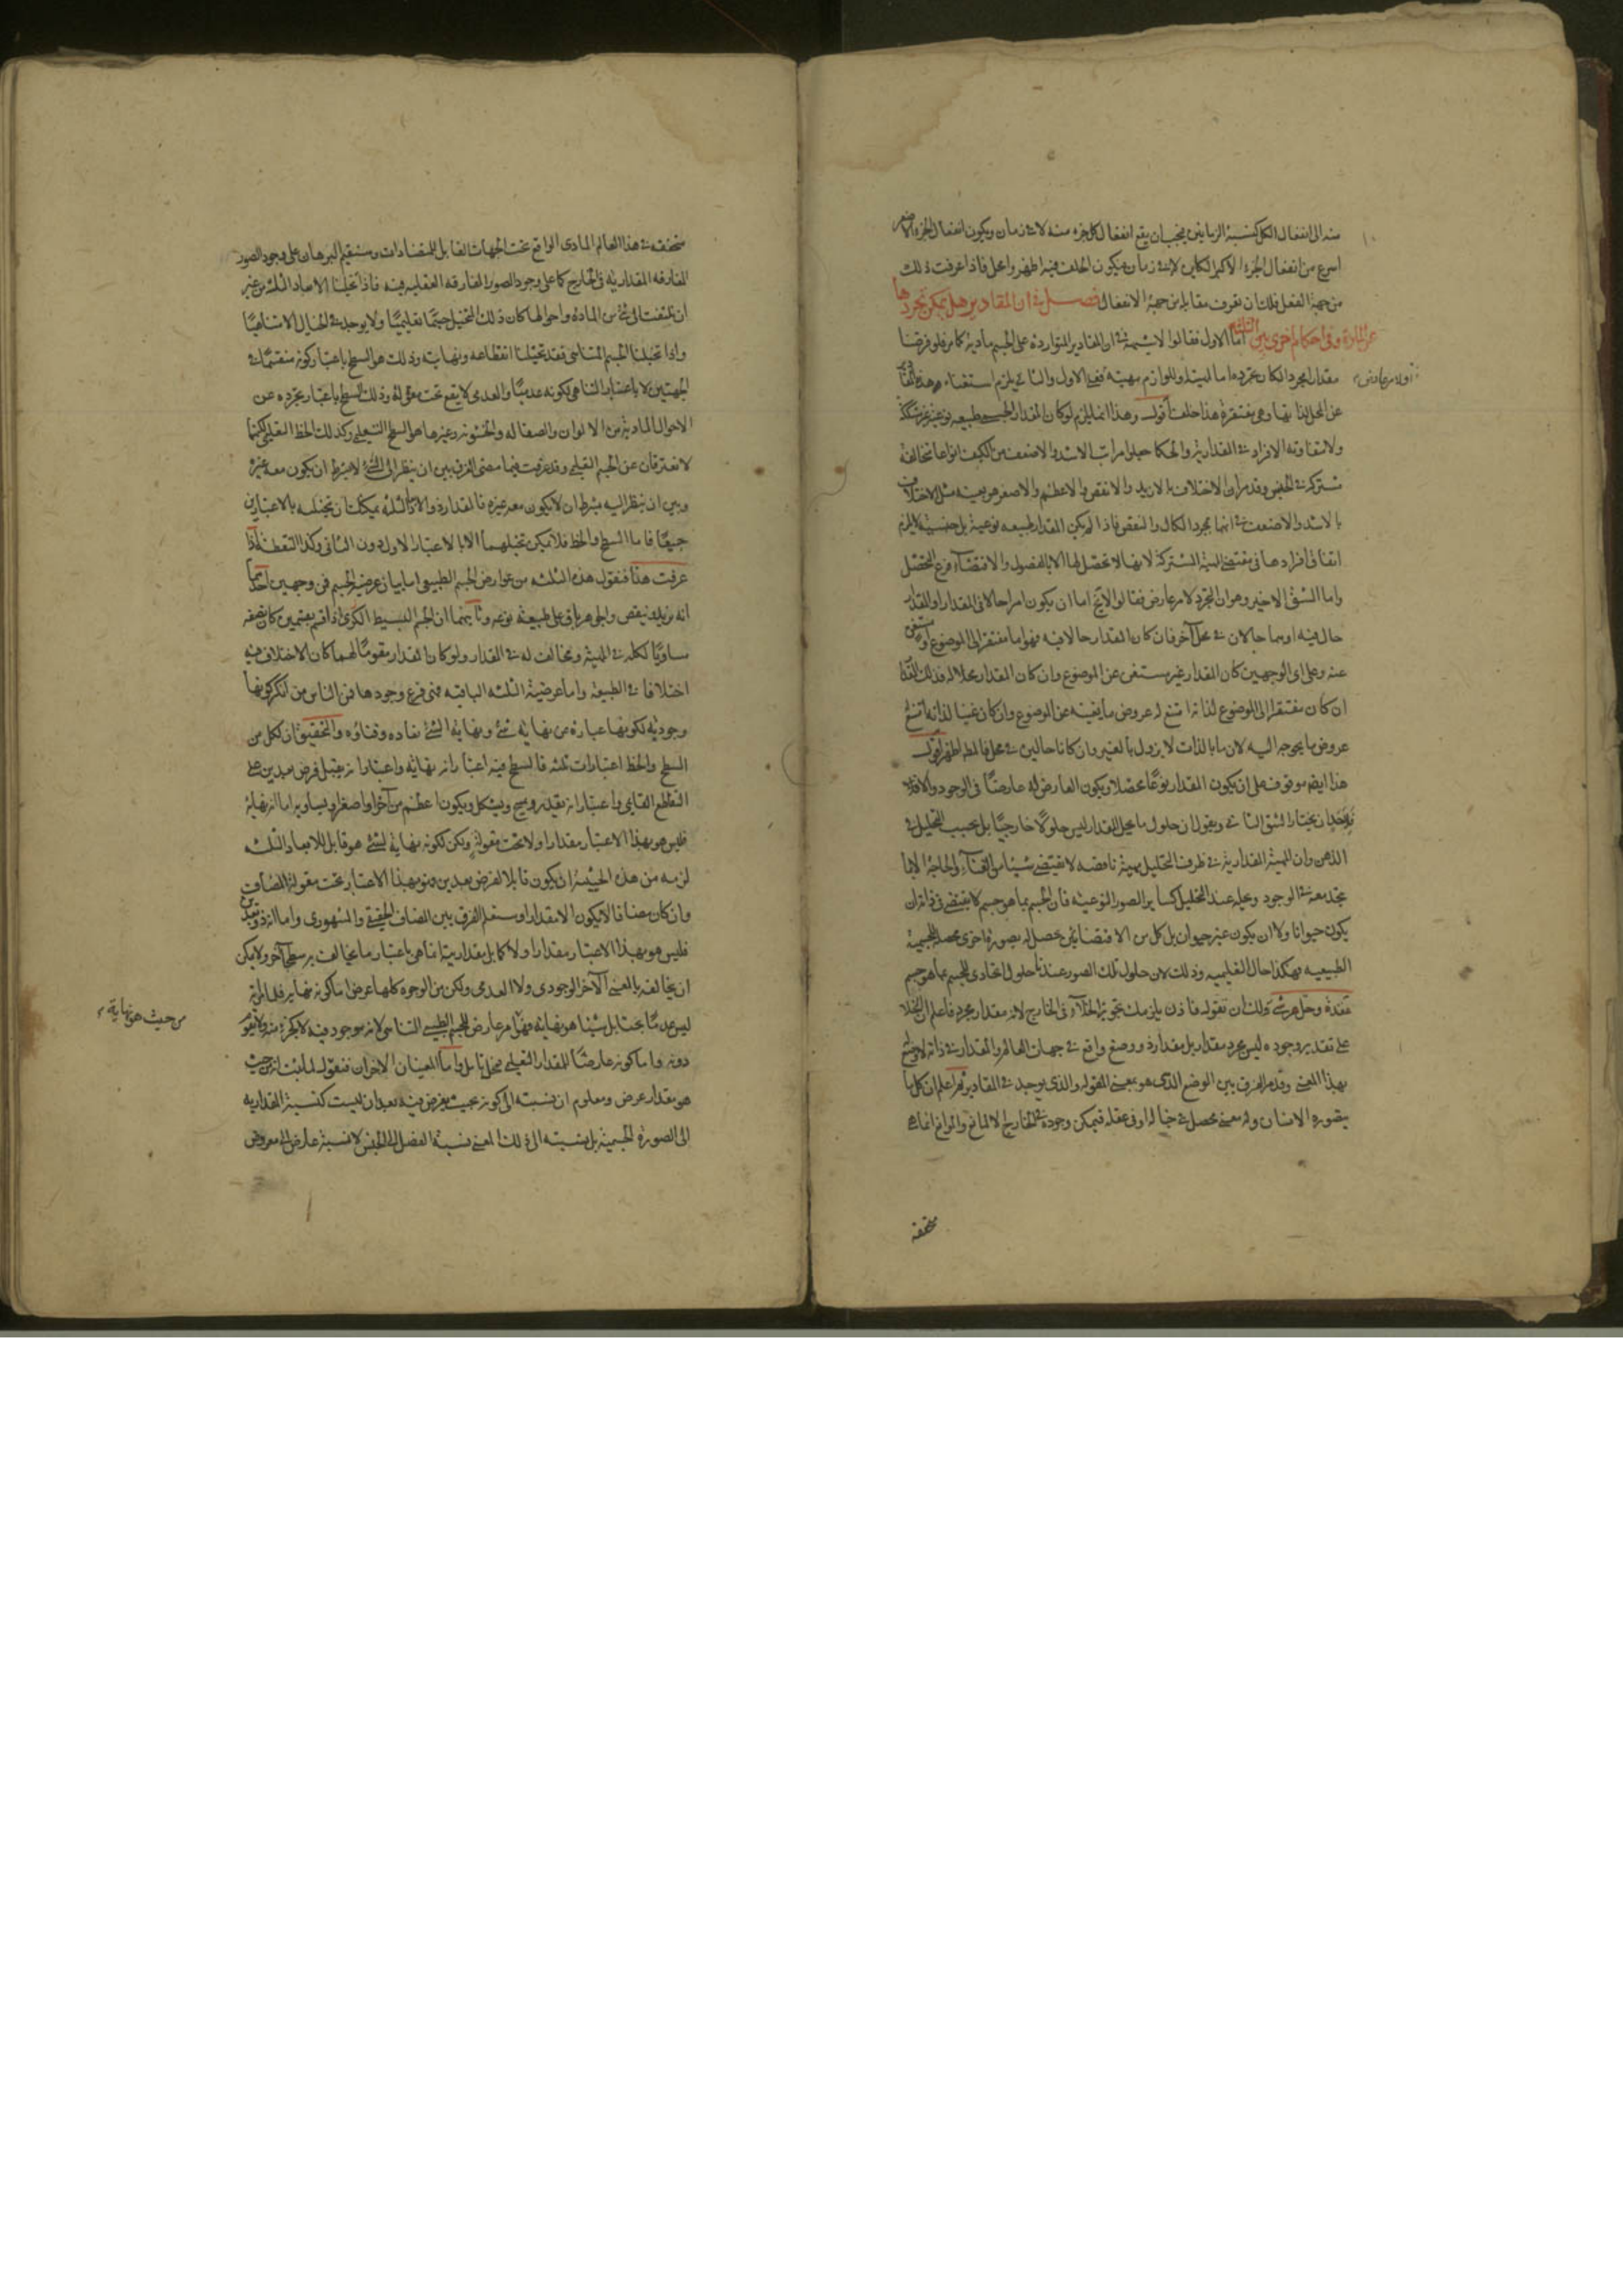 منه الى انفعال الكل كنسبة الزمانين فيجب ان يقع انفعال كل جزء منه لا فى زمان ويكون انفعال الجزء الاصغر
اسرع من انفعال الجزء الاكبر الكاين لا فى زمان فيكون الخلف فيه اظهر وامحل فاذا عرفت ذلك
من جهة الفعل فلك ان تعرف مقابله من جهة الانفعال فصل فى ان المقادير هل يمكن تجردها
عن المادة وفى احكام اخرى بين الثلثه اما الاول فقالوا لا شبهة فى ان المقادير المتواردة على الجسم مادية كما مر فلو فرضنا
مقدارا مجردا لكان تجرده اما لمهيته او للوازم مهيته ففى الاول والثانى يلزم استغناء
عن المحل لذاتها وهى مفتقرة هذا خلف اقول وهذا انما يلزم لو كان المقدار الجسمى طبيعه نوعيه غير مشككة
ولا متفاوته الافراد فى المقدارية والحكما جعلوا مراتب الاشد والاضعف من الكيف انواعا متخالفة
مشتركه فى الجنس وقد مر ان الاختلاف بالازيد والانقص والاعظم والاصغر هو بعينه مثل الاختلاف
بالاشد والاضعف فى انهما بمجرد الكمال والنقص فاذا لم يكن المقدار طبيعه نوعية بل جنسية لا يلزم
اتفاق افرادها فى مقتضى المهية المشتركة لانها لا تحصل لها الا بالفصول والاقتضاء فرع التحصل
واما الشق الاخير وهو ان التجرد لامر عارض فقالوا لا يخ اما ان يكون امرا حالا فى المقدار او المقدار
حال فيه او هما حالان فى محل آخر فان كان المقدار حالا فيه فهو اما مفتقر الى الموضوع او مستغنى
عنه وعلى اى الوجهين كان المقدار غير مستغنى عن الموضوع وان كان المقدار محلا له فذلك المقدار
ان كان مفتقرا الى الموضوع لذاته امتنع له عروض ما يغنيه عن الموضوع وان كان غنيا لذاته امتنع
عروض ما يحوجه اليه لان ما بالذات لا يزول بالغير وان كانا حالين فى محل فالمط اظهر اقول
هذا ايضا موقوف على ان يكون المقدار نوعا محصلا ويكون العارض له عارضا فى الوجود والا فلاحد
ان يختار الشق الثانى ويقول ان حلول ما يحل المقدار ليس حلولا خارجيا بل بحسب التحليل فى
الذهن وان المهية المقدارية فى ظرف التحليل مهية ناقصه لا تقتضى شيئا من الغناء والحاجة الا بما
يتحد معه فى الوجود ويحله عند التحليل كساير الصور النوعيه فان الجسم بما هو جسم لا يقتضى فى ذاته ان
يكون حيوانا ولا ان يكون غير حيوان بل كل من الاقتضائين يحصل له بصورة اخرى محصله للجسمية
الطبيعيه فهكذا حال التعليميه وذلك لان حلول تلك الصور عندنا حلول اتحادى للجسم بما هو جسم
ولك ان تقول فاذن يلزمك تجويز الخلاء فى الخارج لانه مقدار مجرد فاعلم ان الخلا
على تقدير وجوده ليس مجرد مقدار بل مقدار ذو وضع واقع فى جهات العالم والمقدار فى ذاته لا وضع له
بهذا المعنى وقد مر الفرق بين الوضع الذى هو بمعنى المقوله والذى يوجد فى المقادير ثم اعلم ان كل ما
يتصوره الانسان وله معنى محصل فى خياله او فى عقله فيمكن وجوده فى الخارج الا لمانع والموانع انما هى
متحققه
متحققه فى هذا العالم المادى الواقع تحت الجهات القابل للمتضادات وسنقيم البرهان على وجود الصور
المفارقه المقداريه فى الخارج كما على وجود الصور المفارقه العقليه فيه فاذا تخيلنا الابعاد الثلثه من غير
ان يلتفت الى شئ من المادة واحوالها كان ذلك التخيل جسما تعليميا ولا يوجد فى الخيال الا متناهيا
واذا تخيلنا الجسم المتناهى فقد تخيلنا انقطاعه ونهايته وذلك هو السطح باعتبار كونه منقسما فى
الجهتين لا باعتبار التناهى لكونه عدميا والعدمى لا يقع تحت مقولة وذلك السطح باعتبار تجرده عن
الاحوال المادية من الالوان والصقاله والخشونه وغيرها هو السطح التعليمى وكذلك الخط التعليمى لكنهما
لا يفترقان عن الجسم التعليمى وقد عرفت فيما مضى الفرق بين ان ينظر الى الشئ لا بشرط ان يكون معه غيره
وبين ان ينظر اليه بشرط ان لا يكون معه غيره فالمقدار ذو الابعاد الثلثه يمكنك ان تتخيله بالاعتبارين
جميعا فاما السطح والخط فلا يمكن تخيلهما الا بالاعتبار الاول دون الثانى وكذا النقطة اذا
عرفت هذا فنقول هذه الثلثه من عوارض الجسم الطبيعى اما بيان عرضية الجسم فمن وجهين احدهما
انه يزيد وينقص والجوهر باق على طبيعة نوعه وثانيهما ان الجسم البسيط الكرى اذا قسم بقسمين كان نصفه
مساويا لكله فى المهية ومخالف له فى المقدار ولو كان المقدار مقوما لهما كان الاختلاف فيه
اختلافا فى الطبيعة واما عرضية الثلثه الباقيه فهى فرع وجودها فمن الناس من انكر كونها
وجودية لكونها عبارة من نهاية شئ ونهاية الشئ نفاده وفناؤه والتحقيق ان لكل من
السطح والخط اعتبارات ثلثه فالسطح فيه اعتبار انه نهاية واعتبار انه يقبل فرض بعدين على
التقاطع القايمى واعتبار انه يقدر ويمسح ويشكل ويكون اعظم من آخر او اصغر او يساويه اما انه نهاية
فليس هو بهذا الاعتبار مقدارا ولا تحت مقولة ولكن لكونه نهاية لشئ هو قابل للابعاد الثلث
لزمه من هذه الحيثية ان يكون قابلا لفرض بعدين وهو بهذا الاعتبار تحت مقولة المضاف
وان كان مضافا لا يكون الا مقدارا وستعلم الفرق بين المضاف الحقيقى والمشهورى واما انه ذو بعدين
فليس هو بهذا الاعتبار مقدارا ولا كما بل مقدارية انما هى باعتبار ما يخالف به سطحا آخر ولا يمكن
ان يخالفه بالمعنى الآخر الوجودى ولا العدمى ولكن من الوجوه كلها عرض اما كونه نهاية
ليس عدما بحتا بل شيئا هو نهاية فهو امر عارض للجسم الطبيعى المتناهى لانه موجود فيه لا كجزء منه ولا يتقوم
دونه واما كونه عارضا للمقدار التعليمى فمحل تامل واما المعنيان الاخران فنقول لما ثبت انه من حيث
من حيث هو نهاية
هو مقدار عرض ومعلوم ان نسبته الى كونه بحيث يفرض فيه بعدان ليست كنسبة المقداريه
الى الصورة الجسمية بل نسبته الى ذلك المعنى نسبة الفصل الى الجنس لا نسبة عارض الى معروض